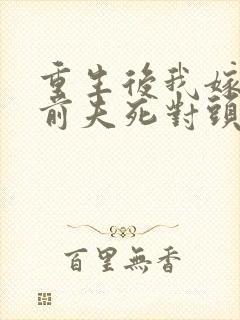 重生後我嫁
前夫死對頭
百里無香